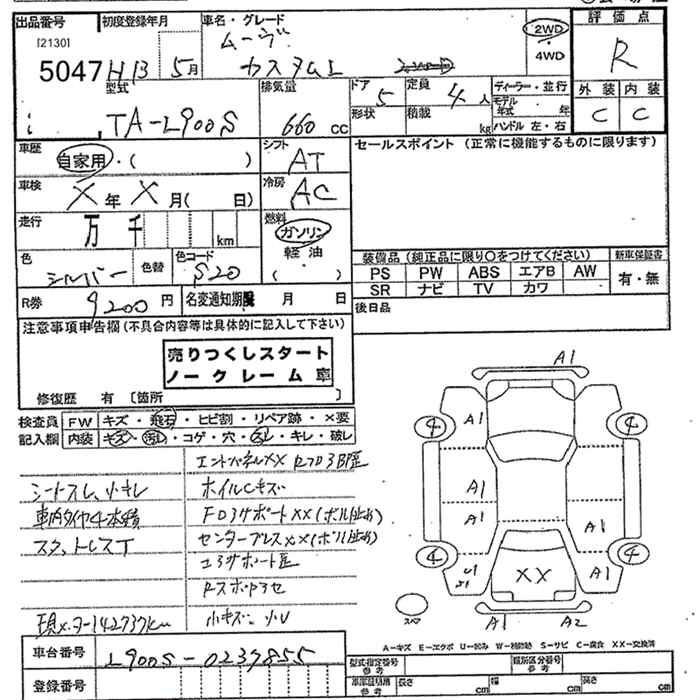 出品番号 初度登録年月 車名・グレード 評価点
[2130] ムーヴ 2WD
5047 H13 5月 カスタム L 4WD R
型式 排気量 ドア 定員 ディーラー・並行 外装 内装
5 4人 モデル年式 年
i TA-L900S 660cc 形状 積載 kg ハンドル 左・右 C C
車歴 自家用・( ) シフト AT セールスポイント (正常に機能するものに限ります)
車検 X年X月( 日) 冷房 AC
走行 万 千 km 燃料 ガソリン
軽油
色 シルバー 色替 色コード S20 ( ) 装備品(純正品に限り○をつけてください) 新車保証書
PS PW ABS エアB AW 有・無
SR ナビ TV カワ
R券 9200円 名変通知期限 月 日 後日品
注意事項申告欄(不具合内容等は具体的に記入して下さい)
売りつくしスタート
ノークレーム車
修復歴 有〔箇所 〕
検査員 FW キズ・飛石・ヒビ割・リペア跡・×要
記入欄 内装 キズ・汚レ・コゲ・穴・スレ・キレ・破レ
シートスレ、小キレ ホイルCキズ
車内タイヤ4本積
センター
小キズ、小U
車台番号 L900S-0237855
登録番号
型式指定番号 参考 類別区分番号 参考
車庫証明用 参考 長さ cm 幅 cm 高さ cm
A1
4 A1 4
A1
A1 A1
4 U1 XX A1 4
スペア A1 A2
A-キズ E-エクボ U-凹み W-補修跡 S-サビ C-腐食 XX-交換済